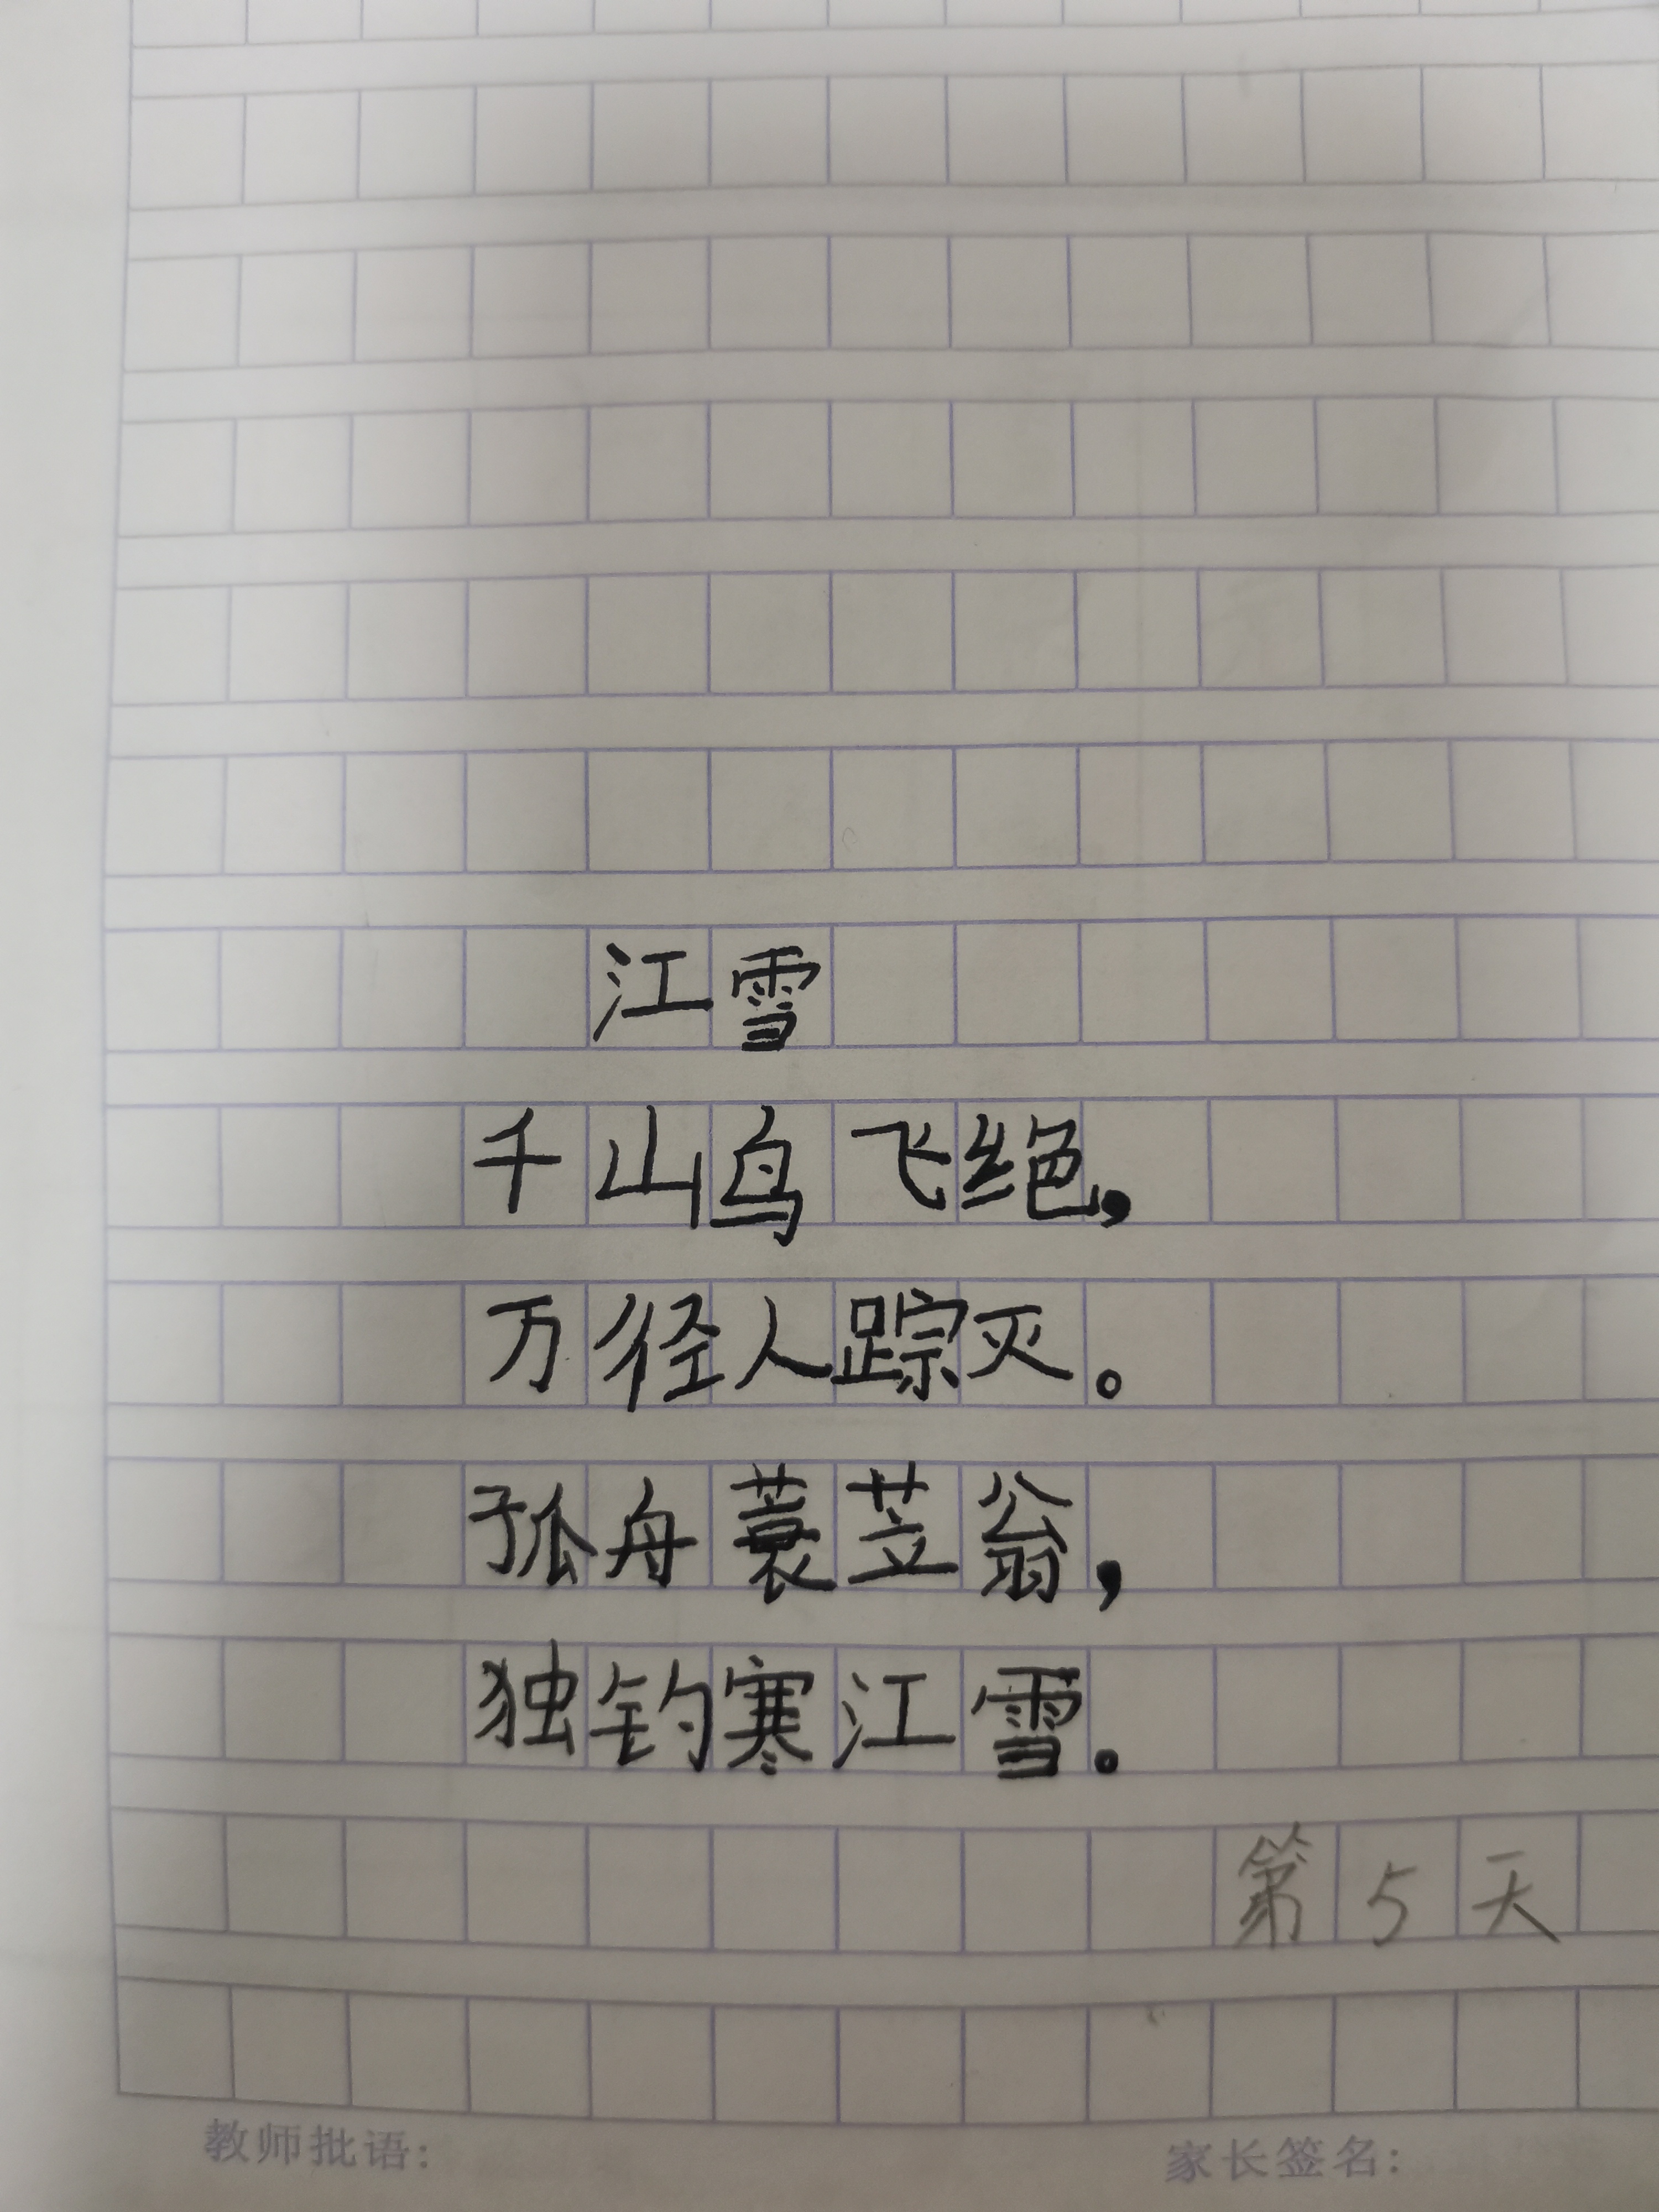 江雪
千山鸟飞绝,
万径人踪灭。
孤舟蓑苙翁,
独钓寒江雪。
第5天
教师批语:
家长签名: